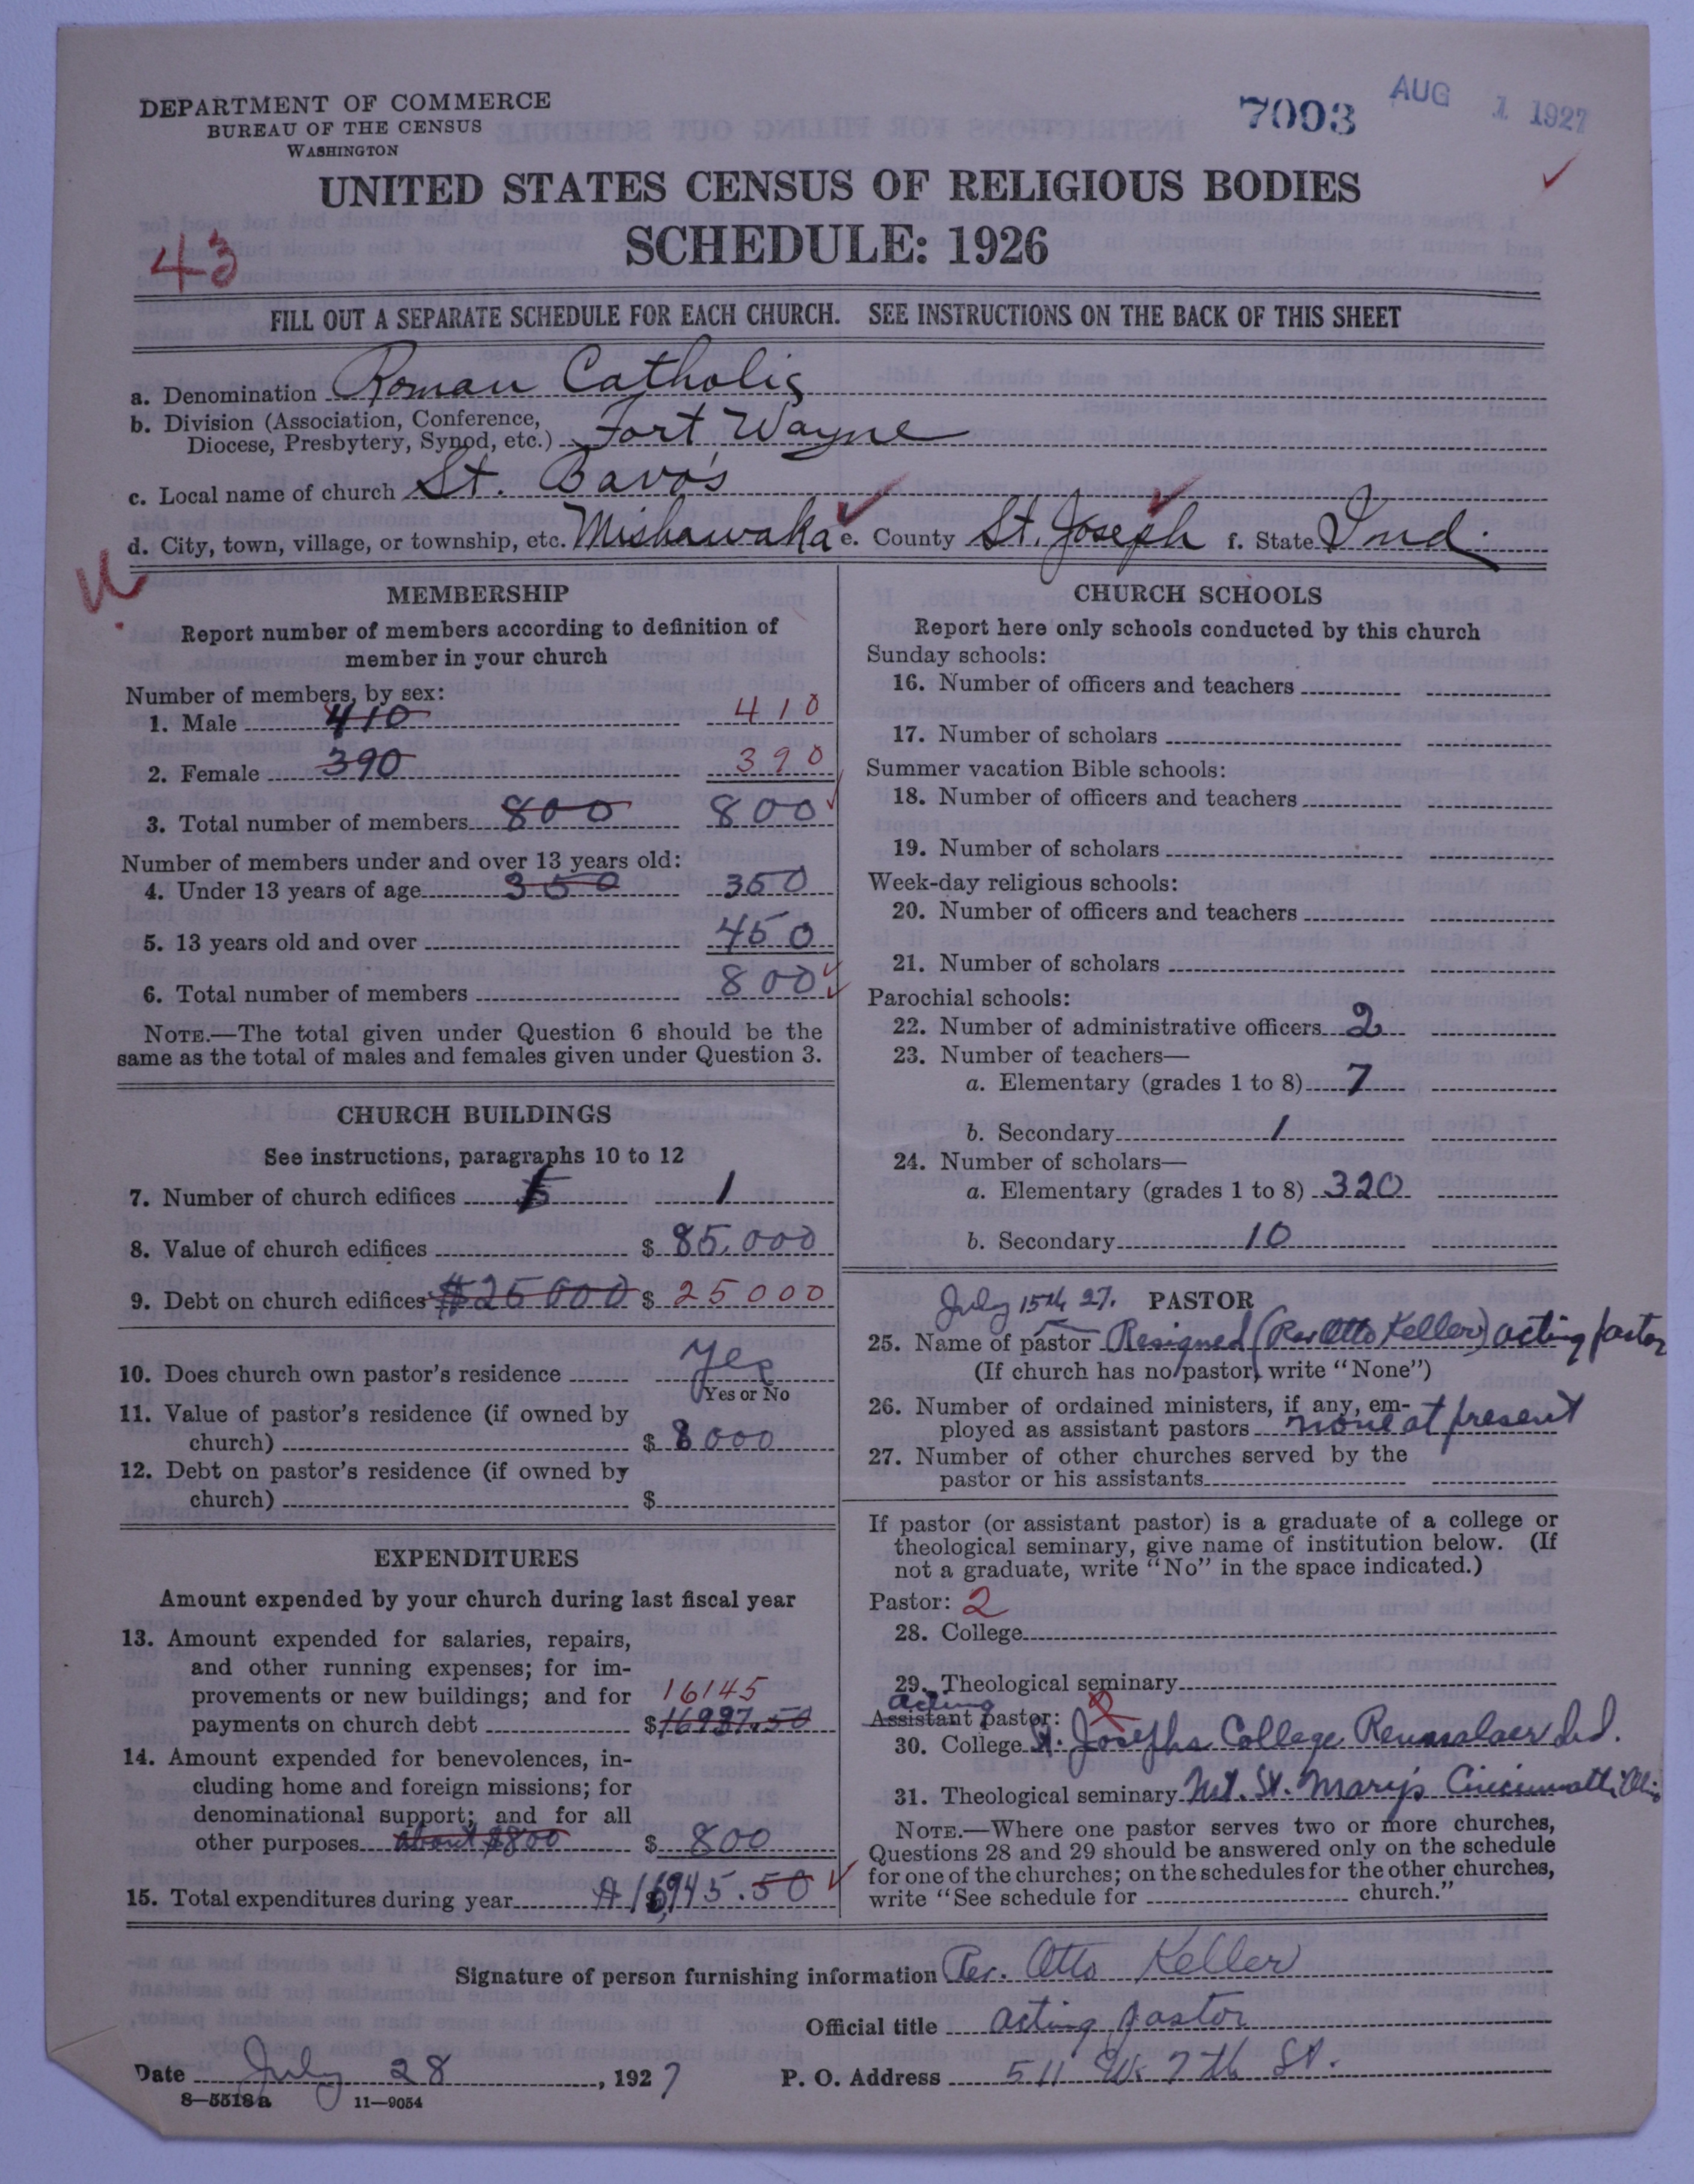 DEPARTMENT OF COMMERCE
BUREAU OF THE CENSUS
WASHINGTON
7003 AUG 1 1927
UNITED STATES CENSUS OF RELIGIOUS BODIES
SCHEDULE: 1926
43
FILL OUT A SEPARATE SCHEDULE FOR EACH CHURCH. SEE INSTRUCTIONS ON THE BACK OF THIS SHEET
a. Denomination Roman Catholic
b. Division (Association, Conference,
Diocese, Presbytery, Synod, etc.) Fort Wayne
c. Local name of church St. Bavo's
d. City, town, village, or township, etc. Mishawaka e. County St. Joseph f. State Ind.
MEMBERSHIP
Report number of members according to definition of
member in your church
Number of members, by sex:
1. Male 410 410
2. Female 390 390
3. Total number of members 800 800
Number of members under and over 13 years old:
4. Under 13 years of age 350 350
5. 13 years old and over 450
6. Total number of members 800
NOTE.—The total given under Question 6 should be the
same as the total of males and females given under Question 3.
CHURCH BUILDINGS
See instructions, paragraphs 10 to 12
7. Number of church edifices 1
8. Value of church edifices $ 85,000
9. Debt on church edifices $25000 $ 25000
10. Does church own pastor's residence Yes
Yes or No
11. Value of pastor's residence (if owned by
church) $ 8000
12. Debt on pastor's residence (if owned by
church) $
EXPENDITURES
Amount expended by your church during last fiscal year
13. Amount expended for salaries, repairs,
and other running expenses; for im-
provements or new buildings; and for 16145
payments on church debt $
14. Amount expended for benevolences, in-
cluding home and foreign missions; for
denominational support; and for all
other purposes about $800 $ 800
15. Total expenditures during year $ 16945.50
CHURCH SCHOOLS
Report here only schools conducted by this church
Sunday schools:
16. Number of officers and teachers
17. Number of scholars
Summer vacation Bible schools:
18. Number of officers and teachers
19. Number of scholars
Week-day religious schools:
20. Number of officers and teachers
21. Number of scholars
Parochial schools:
22. Number of administrative officers 2
23. Number of teachers—
a. Elementary (grades 1 to 8) 7
b. Secondary 1
24. Number of scholars—
a. Elementary (grades 1 to 8) 320
b. Secondary 10
July 15th 27. PASTOR
25. Name of pastor Resigned (Rev Otto Keller) acting pastor
(If church has no pastor, write "None")
26. Number of ordained ministers, if any, em-
ployed as assistant pastors none at present
27. Number of other churches served by the
pastor or his assistants
If pastor (or assistant pastor) is a graduate of a college or
theological seminary, give name of institution below. (If
not a graduate, write "No" in the space indicated.)
Pastor: 2
28. College
29. Theological seminary
acting
Assistant pastor:
30. College St. Josephs College Rensselaer Ind.
31. Theological seminary Mt. St. Mary's Cincinnatti Ohio
NOTE.—Where one pastor serves two or more churches,
Questions 28 and 29 should be answered only on the schedule
for one of the churches; on the schedules for the other churches,
write "See schedule for church."
Signature of person furnishing information Rev. Otto Keller
Official title acting pastor
Date July 28, 1927 P. O. Address 511 W. 7th St.
8—5518a 11—9054